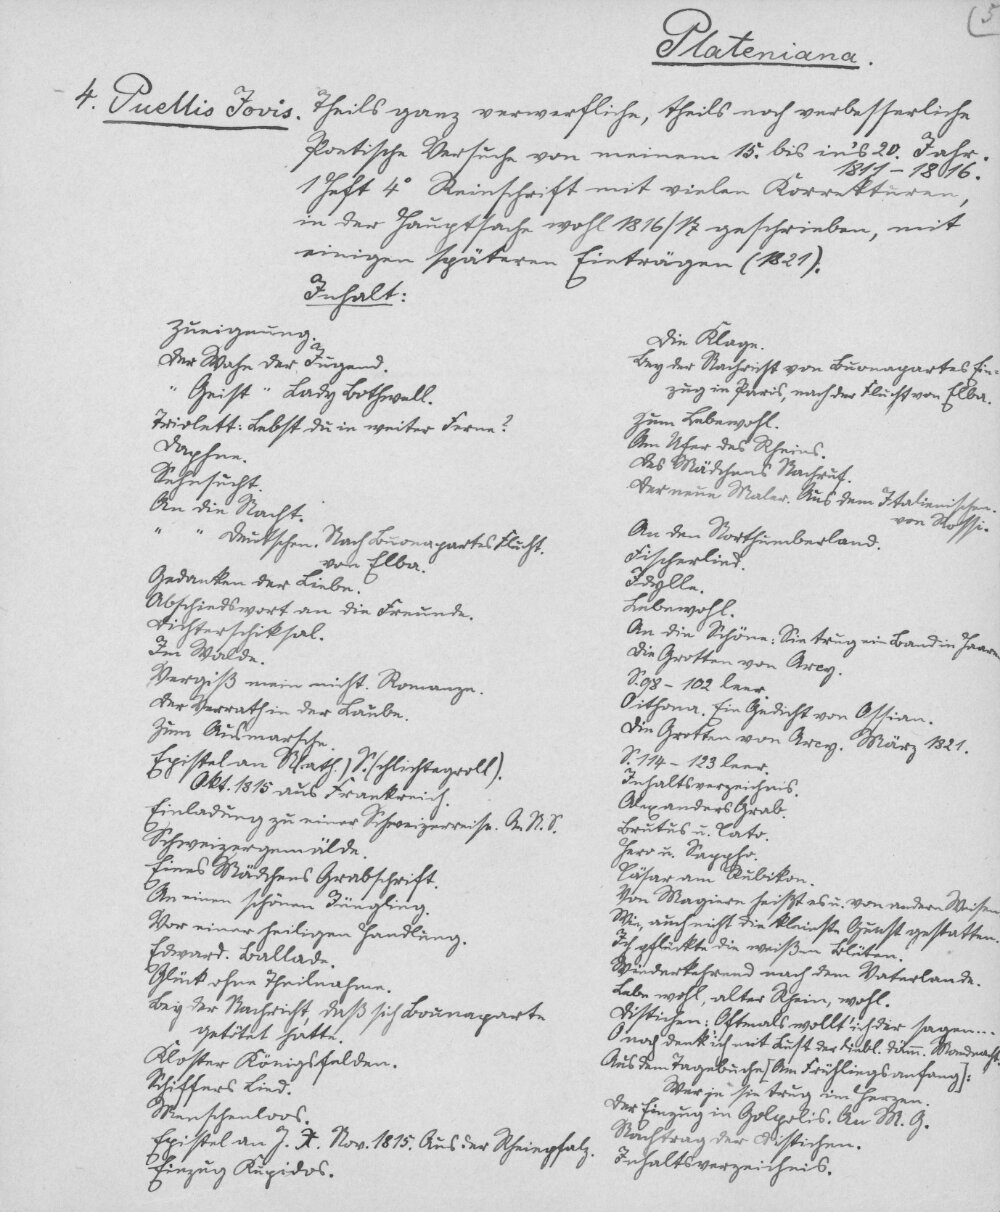 (5
Plateniana.
4. Puellis Jovis. Theils ganz verwerfliche, theils noch verbesserliche
Poetische Versuche von meinem 15. bis in's 20. Jahr.
1811–1816.
1 Heft 4° Reinschrift mit vielen Korrekturen,
in der Hauptsache wohl 1816/17 geschrieben, mit
einigen späteren Einträgen (1821).
Inhalt:
Zueignung.
Der Wahn der Jugend.
" Geist " Lady Bothwell.
Triolett: Lebst du in weiter Ferne?
Daphne.
Sehnsucht.
An die Nacht.
" " Deutschen. Nach Buonapartes Flucht
von Elba.
Gedanken der Liebe.
Abschiedswort an die Freunde.
Dichterschiksal.
Im Walde.
Vergiß mein nicht. Romanze.
Der Verrath in der Laube.
Zum Ausmarsche.
Epistel an N(ath.) S.(chlichtegroll).
Okt. 1815 aus Frankreich.
Einladung zu einer Schweizerreise. A. N. S.
Schweizergemälde.
Eines Mädchens Grabschrift.
An einen schönen Jüngling.
Vor einer heiligen Handlung.
Edward. Ballade.
Glück ohne Theilnahme.
Bey der Nachricht, daß sich Bounaparte
getötet hätte.
Kloster Königsfelden.
Schiffers Lied.
Menschenloos.
Epistel an J. X. Nov. 1815. Aus der Rheinpfalz.
Einzug Kupidos.
Die Klage.
Bey der Nachricht von Buonapartes Ein-
zug in Paris, nach der Flucht von Elba.
Zum Lebewohl.
Am Ufer des Rheins.
Des Mädchens Nachruf.
Der neue Maler. Aus dem Italienischen.
von Rossi.
An den Northumberland.
Fischerlied.
Idylle.
Lebewohl.
An die Schöne: Sie trug ein Band in Haaren
Die Grotten von Arcy.
S. 98 – 102 leer.
Oithona. Ein Gedicht von Ossian.
Die Grotten von Arcy. März 1821.
S. 114 – 123 leer.
Inhaltsverzeichnis.
Alexanders Grab.
Brutus u. Cato.
Hero u. Sappho.
Cäsar am Rubikon.
Von Magiern heißt es u. von andern Weisen
Wie, auch nicht die kleinste Gunst gestatten.
Ich pflückte die weißen Blüten.
Wiederkehrend nach dem Vaterlande.
Lebe wohl, alter Rhein, wohl.
Distichen: Oftmals wollt' ich dir sagen...
O noch denk' ich mit Lust der liebl. Mondnacht.
Aus dem Tagebuche [Am Frühlingsanfang]:
Wer je sie trug im Herzen.
Der Einzug in Golpolis. An M. G.
Nachtrag der Distichen.
Inhaltsverzeichnis.